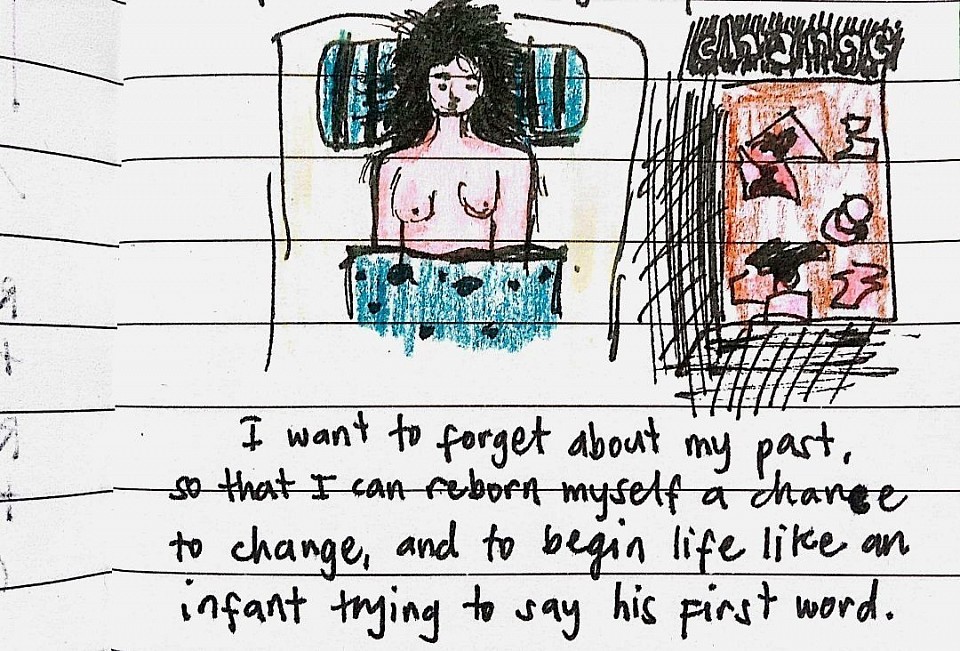 change
I want to forget about my past,
so that I can reborn myself a chance
to change, and to begin life like an
infant trying to say his first word.